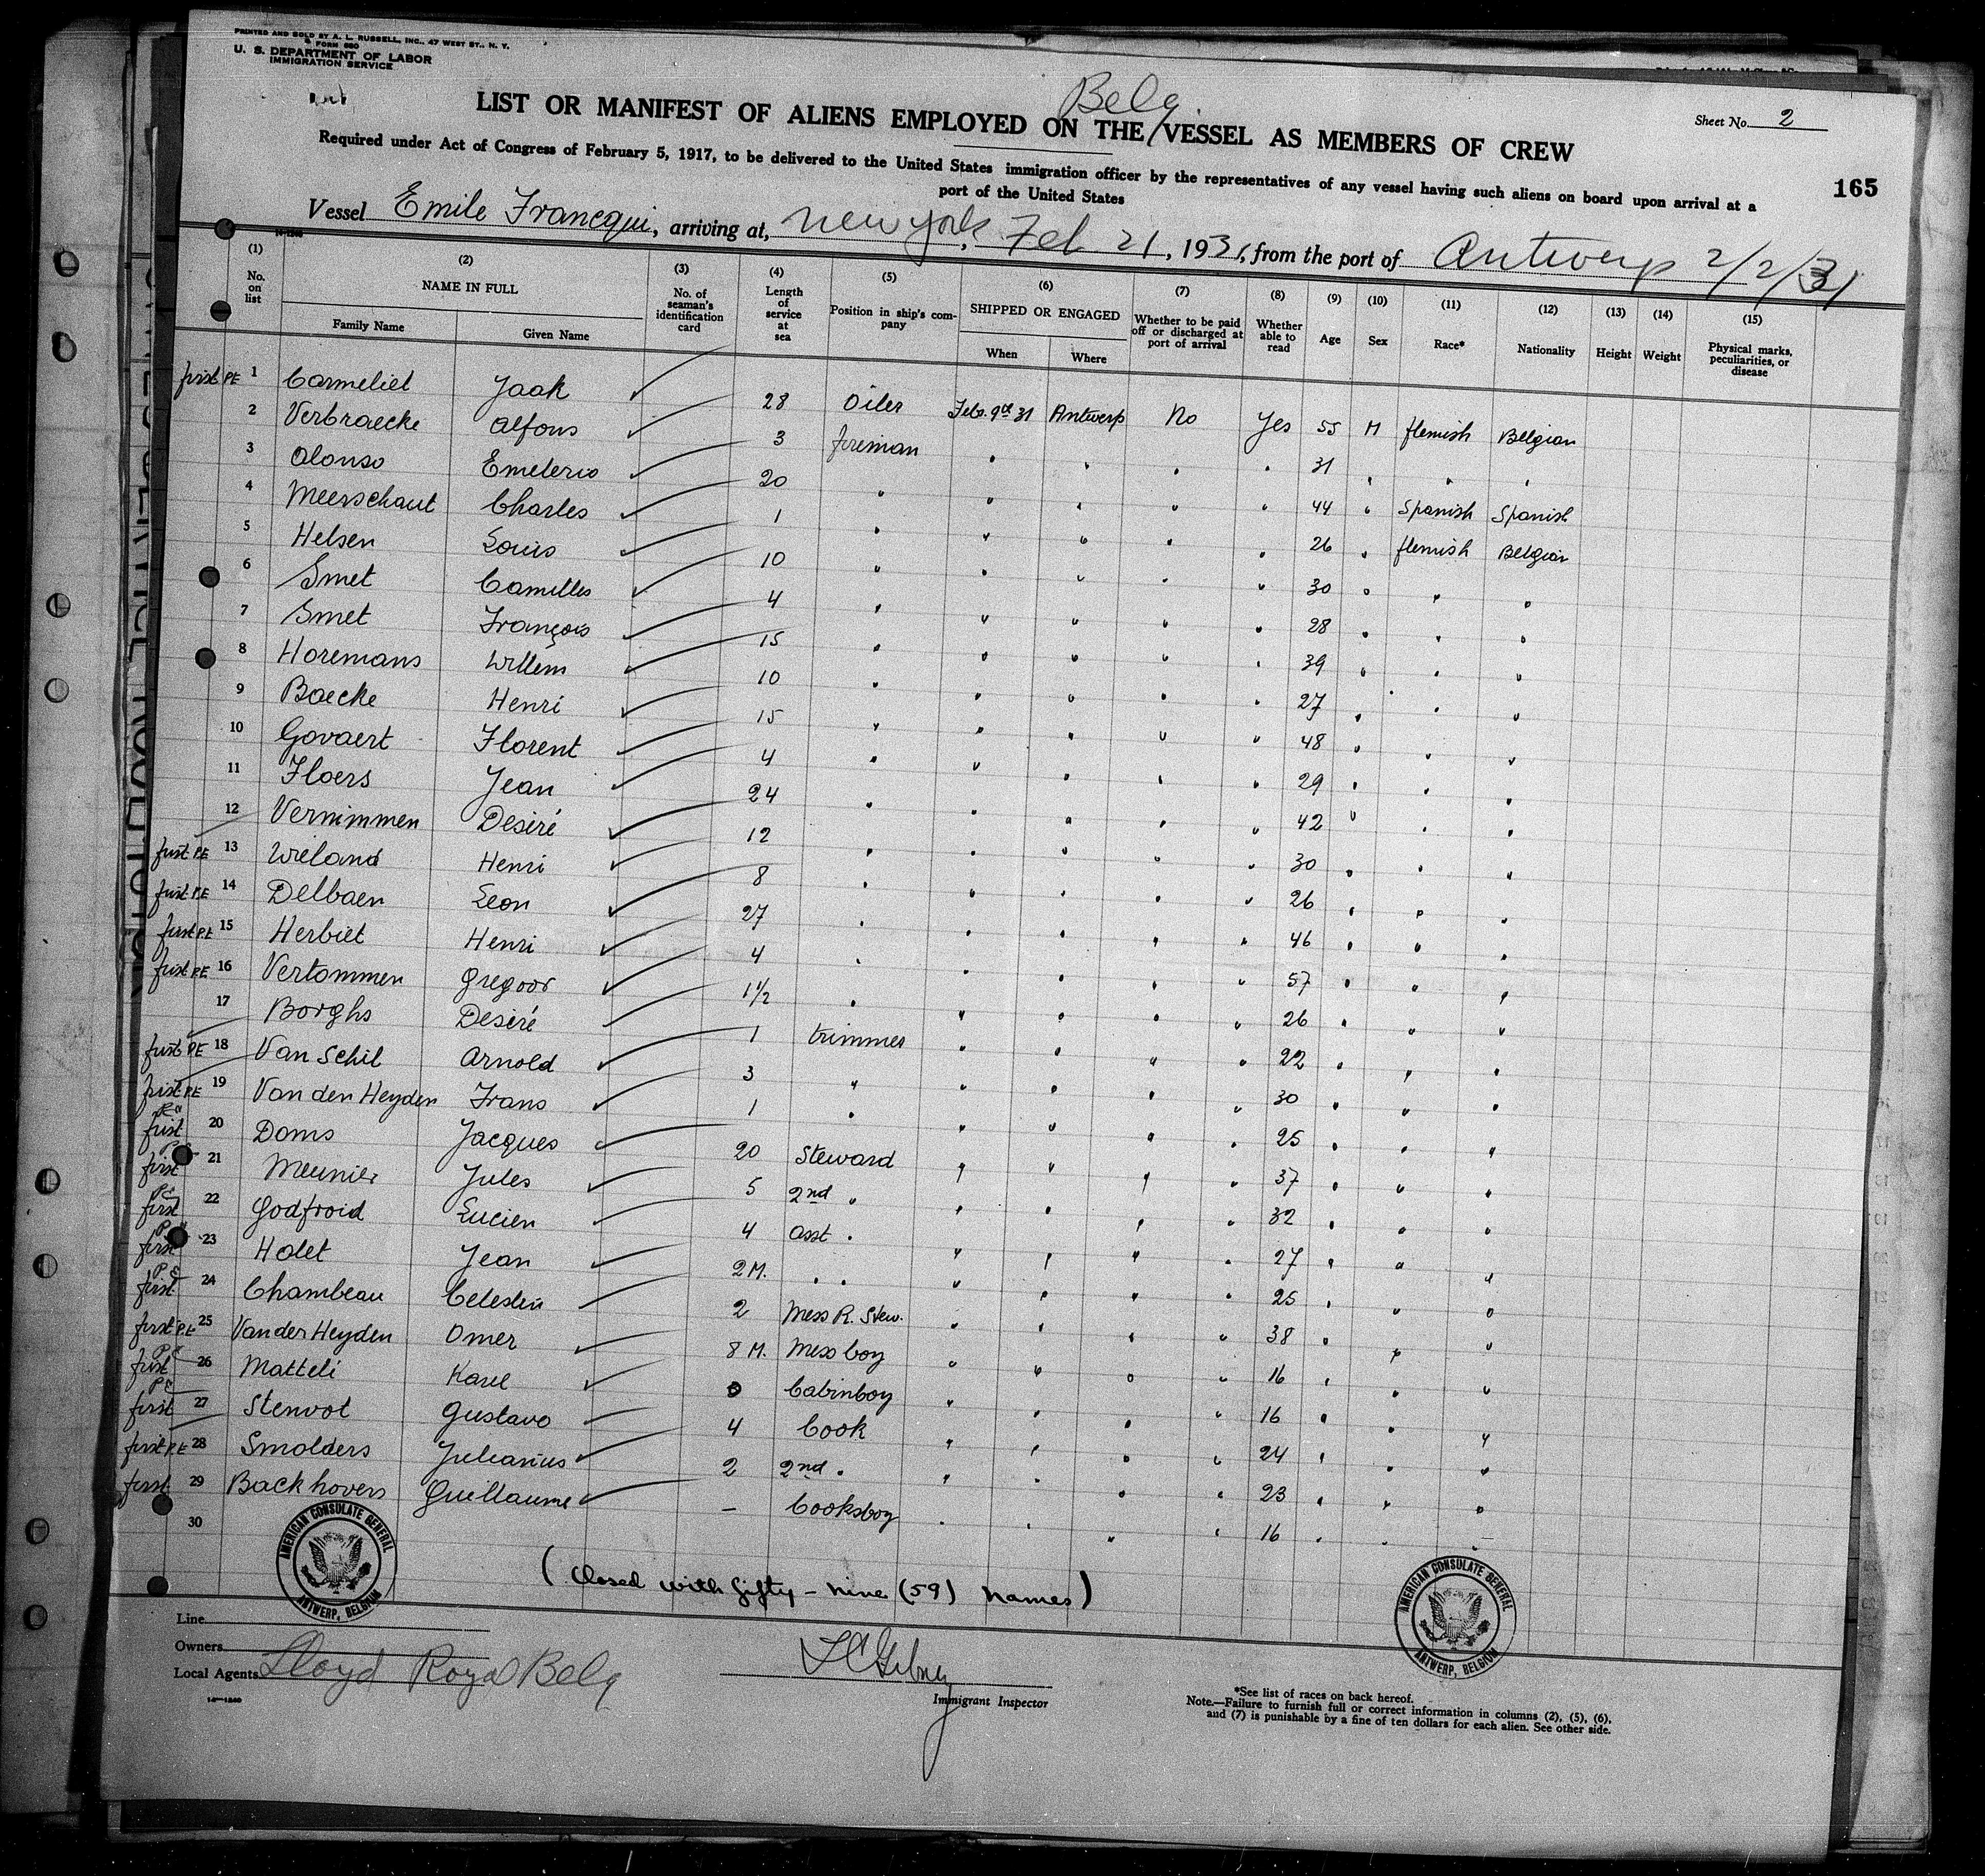 PRINTED AND SOLD BY A. L. RUSSELL, INC., 47 WEST ST., N. Y.
FORM 680
U. S. DEPARTMENT OF LABOR
IMMIGRATION SERVICE
Belg.
LIST OR MANIFEST OF ALIENS EMPLOYED ON THE VESSEL AS MEMBERS OF CREW
Sheet No. 2
Required under Act of Congress of February 5, 1917, to be delivered to the United States immigration officer by the representatives of any vessel having such aliens on board upon arrival at a
port of the United States
165
Vessel Emile Francqui, arriving at, New York, Feb 21, 1931, from the port of Antwerp 2/2/31
(1) No. on list (2) NAME IN FULL Family Name Given Name (3) No. of seaman's identification card (4) Length of service at sea (5) Position in ship's company (6) SHIPPED OR ENGAGED When Where (7) Whether to be paid off or discharged at port of arrival (8) Whether able to read (9) Age (10) Sex (11) Race* (12) Nationality (13) Height (14) Weight (15) Physical marks, peculiarities, or disease
first PE 1 Carmeliet Jaak 28 Oiler Feb. 9th 31 Antwerp No Yes 55 M flemish Belgian
2 Verbraecke Alfons 3 fireman " " " " 31 " " "
3 Alonso Emeterio 20 " " " " " 44 " Spanish Spanish
4 Meerschaut Charles 1 " " " " " 26 " flemish Belgian
5 Helsen Louis 10 " " " " " 30 " " "
6 Smet Camilles 4 " " " " " 28 " " "
7 Smet François 15 " " " " " 39 " " "
8 Horemans Willem 10 " " " " " 27 " " "
9 Baecke Henri 15 " " " " " 48 " " "
10 Govaert Florent 4 " " " " " 29 " " "
11 Floers Jean 24 " " " " " 42 " " "
12 Vernimmen Desiré 12 " " " " " 30 " " "
first PE 13 Wieland Henri 8 " " " " " 26 " " "
first PE 14 Delbaen Leon 27 " " " " " 46 " " "
first PE 15 Herbiet Henri 4 " " " " " 57 " " "
first PE 16 Vertommen Gregoor 1 1/2 " " " " " 26 " " "
17 Borghs Desiré 1 trimmer " " " " 22 " " "
first PE 18 Van Schil Arnold 3 " " " " " 30 " " "
first PE 19 Van den Heyden Frans 1 " " " " " 25 " " "
first PE 20 Doms Jacques 20 Steward " " " " 37 " " "
first PE 21 Meunier Jules 5 2nd " " " " " 32 " " "
first PE 22 Godfroid Lucien 4 asst " " " " " 27 " " "
first PE 23 Halet Jean 2 M. " " " " " " 25 " " "
first PE 24 Chambeau Celestin 2 Mess R. Stew. " " " " 38 " " "
first PE 25 Van der Heyden Omer 8 M. Mess boy " " " " 16 " " "
first PE 26 Matteli Karel 0 Cabinboy " " " " 16 " " "
first PE 27 Stenvot Gustave 4 Cook " " " " 24 " " "
first PE 28 Smolders Julianius 2 2nd " " " " " 23 " " "
first 29 Backhovers Guillaume - Cooksboy " " " " 16 " " "
30
(Closed with fifty-nine (59) names)
AMERICAN CONSULATE GENERAL ANTWERP, BELGIUM
AMERICAN CONSULATE GENERAL ANTWERP, BELGIUM
Line
Owners
Local Agents Lloyd Royal Belg
Immigrant Inspector
14—1240
*See list of races on back hereof.
Note.—Failure to furnish full or correct information in columns (2), (5), (6),
and (7) is punishable by a fine of ten dollars for each alien. See other side.